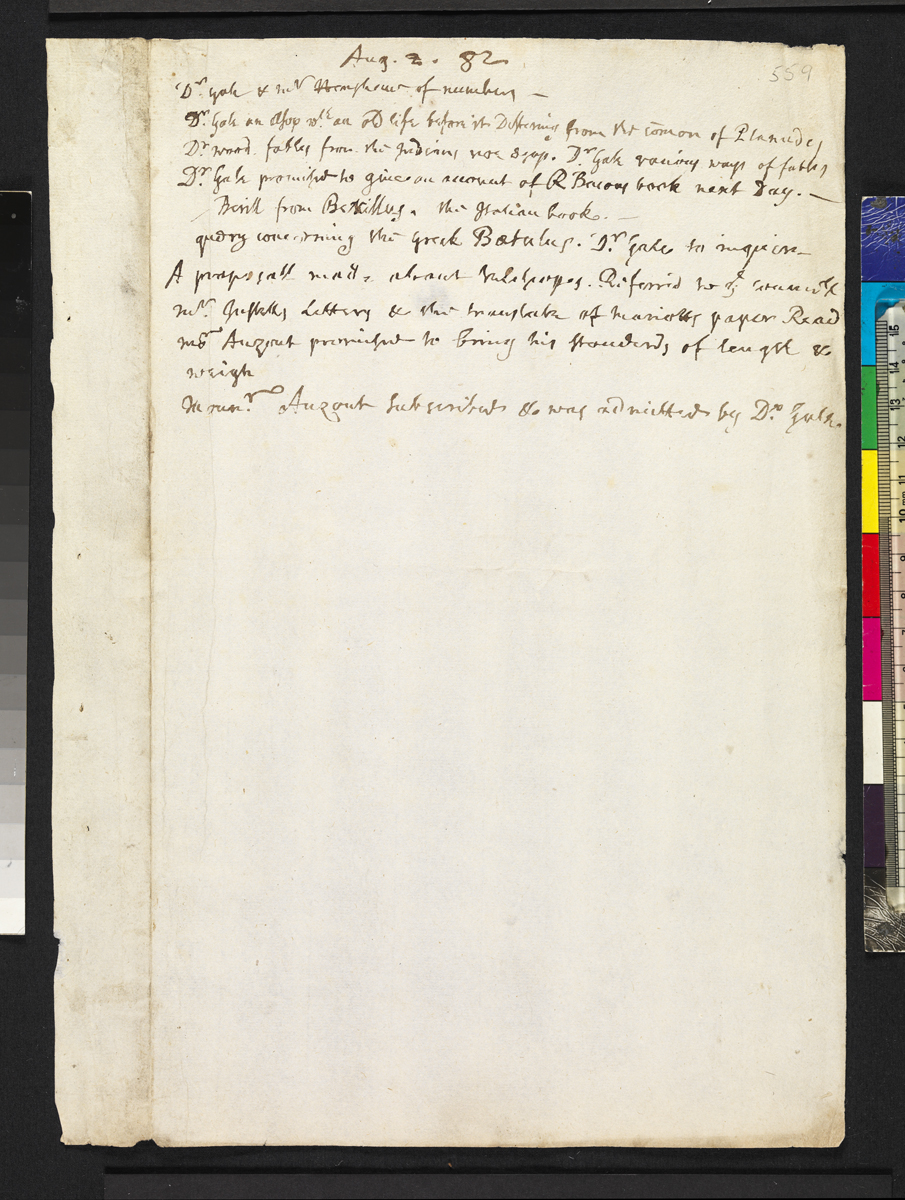 Aug. 2. 82
559
Dr. Gale & mr Henshaw of numbers —
Dr. Gale an Esop wth an old life before it Differing from the comon of Planudes
Dr wood fables from the Indians not Esop. Dr. Gale various ways of fables
Dr. Gale promised to give an account of R Bacons book next Day. —
Berill from Berillus. the Italian book. —
query concerning the Greek Bætulus. Dr. Gale to inquire
A proposall made about Telescopes. Referrd to ye councell
mr. Letters & the translate of mariotts paper Read
mr Auzout promised to bring his standards of length &
weigh
monsr. Auzout subscribed & was admitted by Dr. Gale.
15
14
13
12
11
10 mm
9
8
7
6
5
4
3
2
1